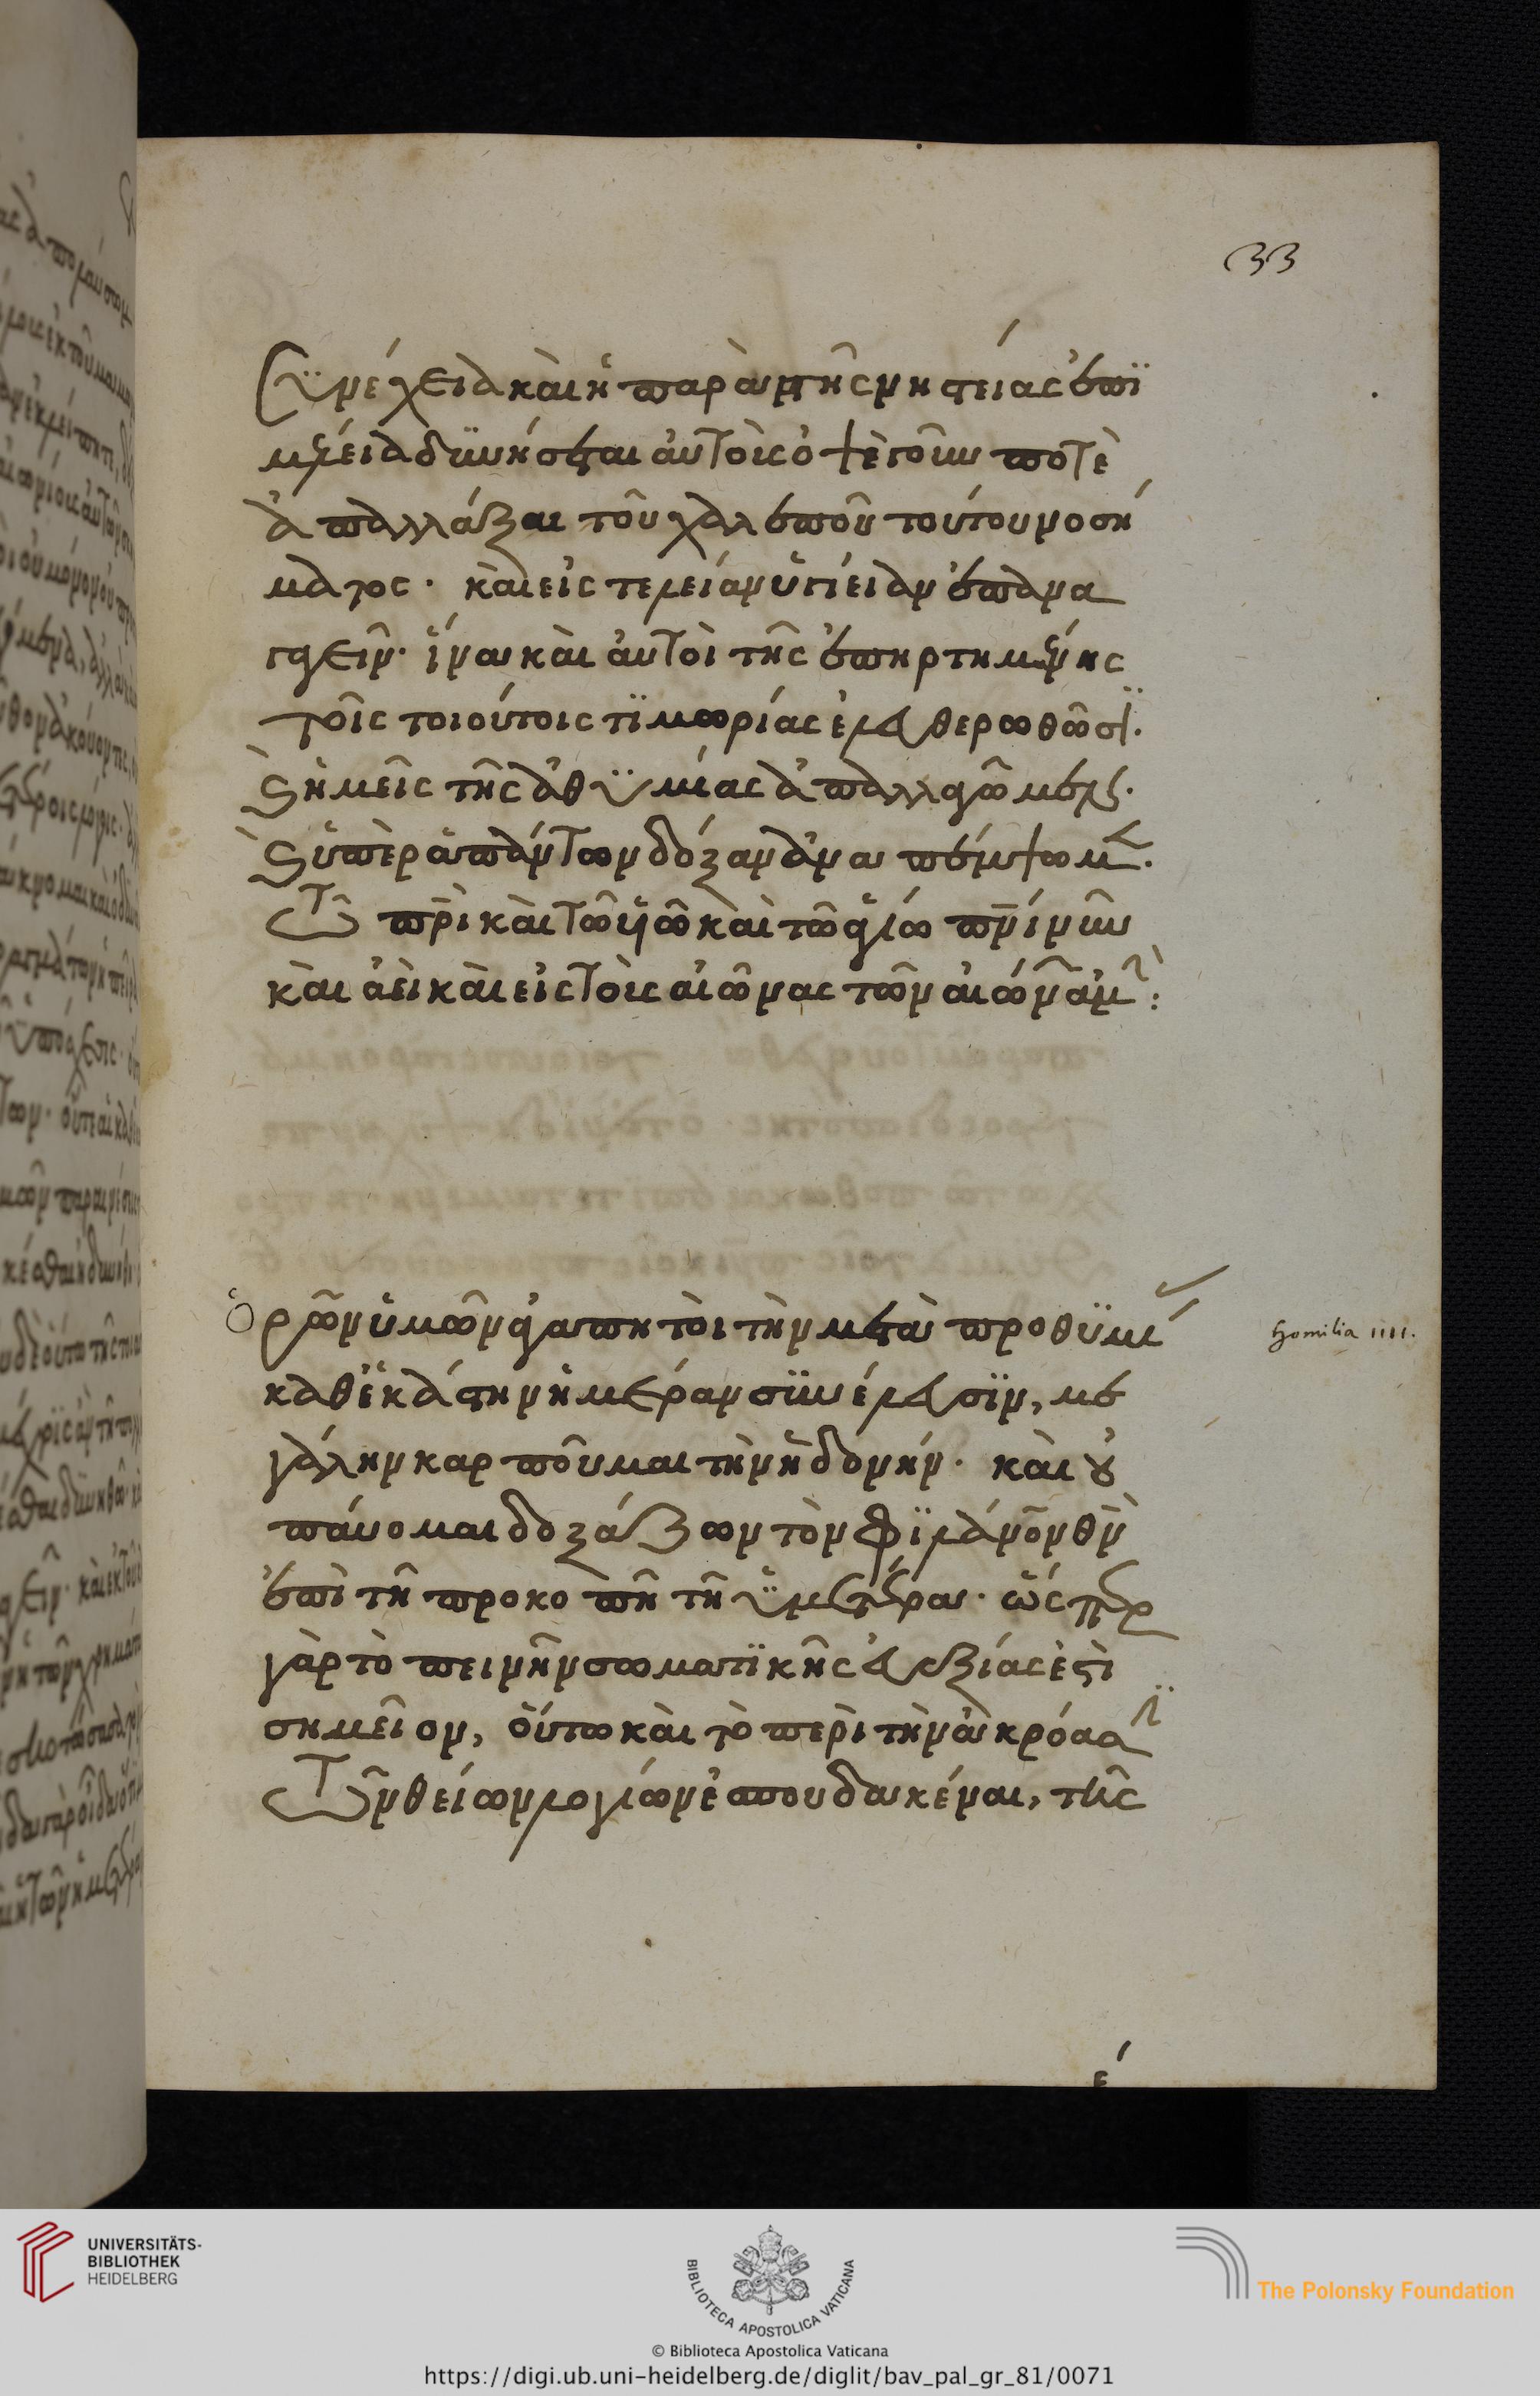 33
Συνέχεια καὶ ἡ παρὰ τῆς νηστείας ἐπι
μέλεια δυνήσεται αὐτοὺς ὀψὲ γοῦν ποτὲ
ἀπαλλάξαι τοῦ χαλεποῦ τούτου νοσή
ματος. καὶ εἰς τελείαν ὑγίειαν ἐπανα
γαγεῖν. ἵνα καὶ αὐτοὶ τῆς ἐπηρτημένης
τοῖς τοιούτοις τιμωρίας ἐλευθερωθῶσι.
καὶ ἡμεῖς τῆς ἀθυμίας ἀπαλλαγῶμεν.
καὶ ὑπὲρ ἁπάντων δόξαν ἀναπέμψωμεν.
Τῷ πρὶ καὶ τῷ υἱῷ καὶ τῷ ἁγίῳ πνι νῦν
καὶ ἀεὶ καὶ εἰς τοὺς αἰῶνας τῶν αἰώνων ἀμήν:
Ὁρῶν ὑμῶν ἀγαπητοὶ τὴν μετὰ προθυμί
καθ' ἑκάστην ἡμέραν συνέλευσιν, με
γάλην καρποῦμαι τὴν ἡδονήν. καὶ οὐ
παύομαι δοξάζων τὸν φιλάνον θν
ἐπὶ τῇ προκοπῇ τῇ ὑμετέρα. ὥσπερ
γὰρ τὸ πεινῆν σωματικῆς εὐεξίας ἐστὶ
σημεῖον, οὕτω καὶ τὸ περὶ τὴν ἀκρόασιν
Τῶν θείων λογίων ἐσπουδακέναι, τῆς
Homilia IIII.
UNIVERSITÄTS-
BIBLIOTHEK
HEIDELBERG
BIBLIOTECA APOSTOLICA VATICANA
The Polonsky Foundation
© Biblioteca Apostolica Vaticana
https://digi.ub.uni-heidelberg.de/diglit/bav_pal_gr_81/0071